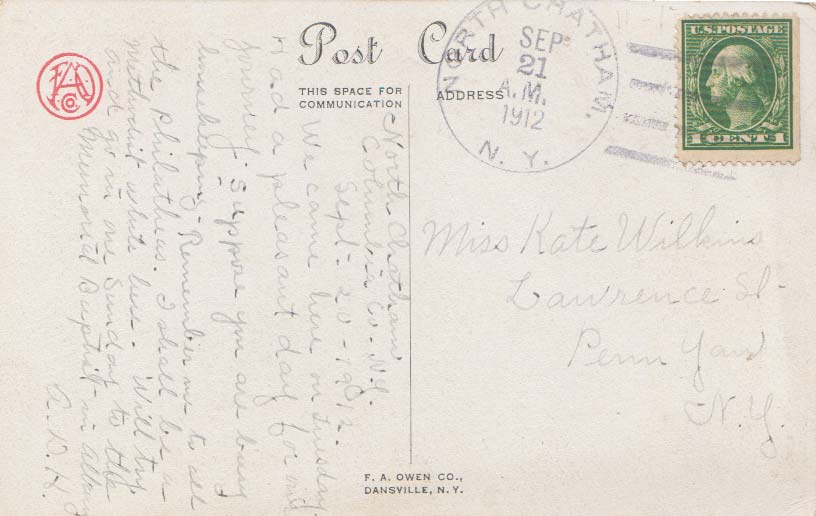 Post Card
THIS SPACE FOR
COMMUNICATION
ADDRESS
NORTH CHATHAM.
SEP
21
A.M.
1912
N. Y.
U.S. POSTAGE
1 CENT 1
North Chatham
Columbia Co. N.Y.
Sept- 20-1912.
We came here on Tuesday.
Had a pleasant day for our
journey. Suppose you are busy
housekeeping. Remember me to all
the Philatheas. I shall be a
Methodist while here. Will try
and go in one Sunday to the
Memorial Baptist in Albany
A. D. H.
Miss Kate Wilkins
Lawrence St-
Penn Yan
N.Y.
F. A. OWEN CO.,
DANSVILLE, N. Y.